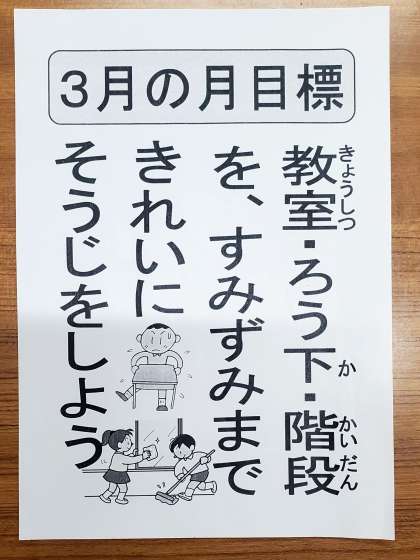 3月の月目標
教室・ろう下・階段
きょうしつ
か
かいだん
を、すみずみまで
きれいに
そうじをしよう